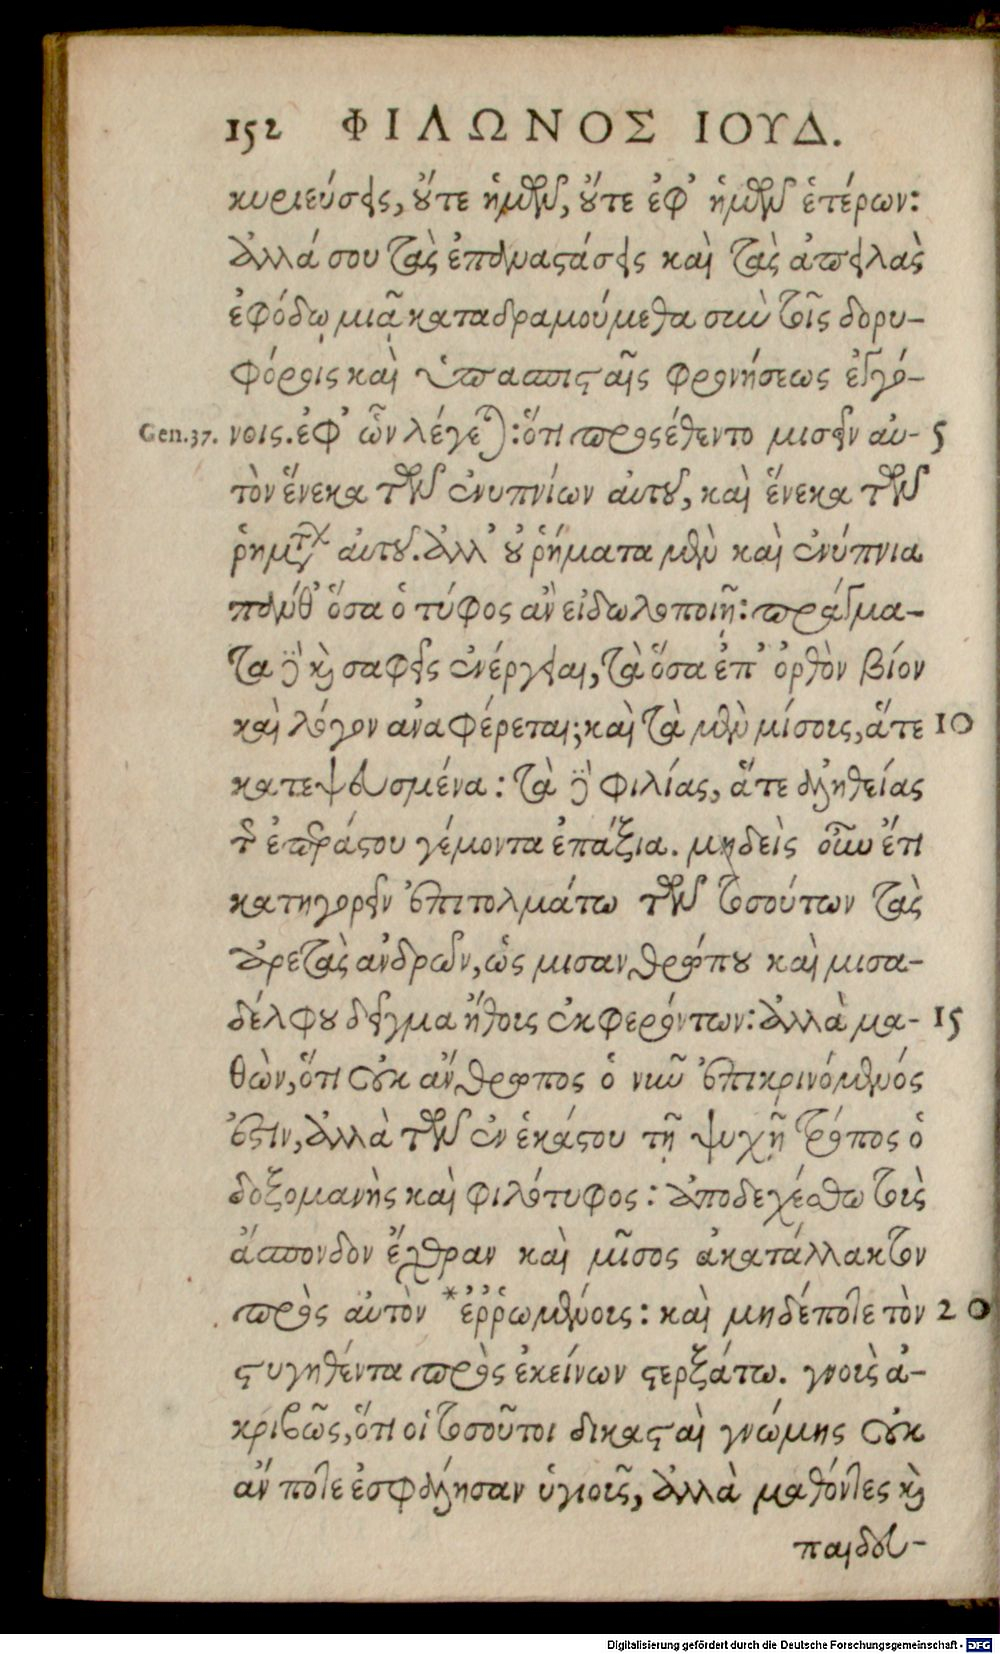 152 ΦΙΛΩΝΟΣ ΙΟΥΔ.
κυριεύσεις, οὔτε ἡμῶν, οὔτε ἐφ᾽ ἡμῶν ἑτέρων:
ἀλλά σου τὰς ἐπαναστάσεις καὶ τὰς ἀπειλὰς
ἐφόδῳ μιᾷ καταδραμούμεθα σὺν τοῖς δορυ-
φόροις καὶ ὑπασπισταῖς φρονήσεως ἐγγό-
Gen.37. νοις. ἐφ᾽ ὧν λέγεται: ὅτι προσέθεντο μισεῖν αὐ- 5
τὸν ἕνεκα τῶν ἐνυπνίων αὐτοῦ, καὶ ἕνεκα τῶν
ῥημάτων αὐτοῦ. ἀλλ᾽ οὐ ῥήματα μὲν καὶ ἐνύπνια
πάνθ᾽ ὅσα ὁ τύφος ἀνειδωλοποιῇ: πράγμα-
τα δὲ καὶ σαφεῖς ἐνέργειαι, τὰ ὅσα ἐπ᾽ ὀρθὸν βίον
καὶ λόγον ἀναφέρεται; καὶ τὰ μὲν μίσους, ἅτε 10
κατεψευσμένα: τὰ δὲ φιλίας, ἅτε ἀληθείας
τῆς ἐπεράστου γέμοντα ἐπάξια. μηδεὶς οὖν ἔτι
κατηγορεῖν ἐπιτολμάτω τῶν τοσούτων τὰς
ἀρετὰς ἀνδρῶν, ὡς μισανθρώπου καὶ μισα-
δέλφου δεῖγμα ἤθους ἐκφερόντων: ἀλλὰ μα- 15
θὼν, ὅτι οὐκ ἄνθρωπος ὁ νῦν ἐπικρινόμενός
ἐστιν, ἀλλὰ τῶν ἐν ἑκάστου τῇ ψυχῇ τρόπος ὁ
δοξομανὴς καὶ φιλότυφος: ἀποδεχέσθω τοὺς
ἄσπονδον ἔχθραν καὶ μῖσος ἀκατάλλακτον
πρὸς αὐτὸν *ἐῤῥωμένους: καὶ μηδέποτε τὸν 20
στυγηθέντα πρὸς ἐκείνων στερξάτω. γνοὺς ἀ-
κριβῶς, ὅτι οἱ τοσοῦτοι δικασταὶ γνώμης οὐκ
ἄν ποτε ἐσφάλησαν ὑγιοῦς, ἀλλὰ μαθόντες καὶ
παιδευ-
Digitalisierung gefördert durch die Deutsche Forschungsgemeinschaft - DFG